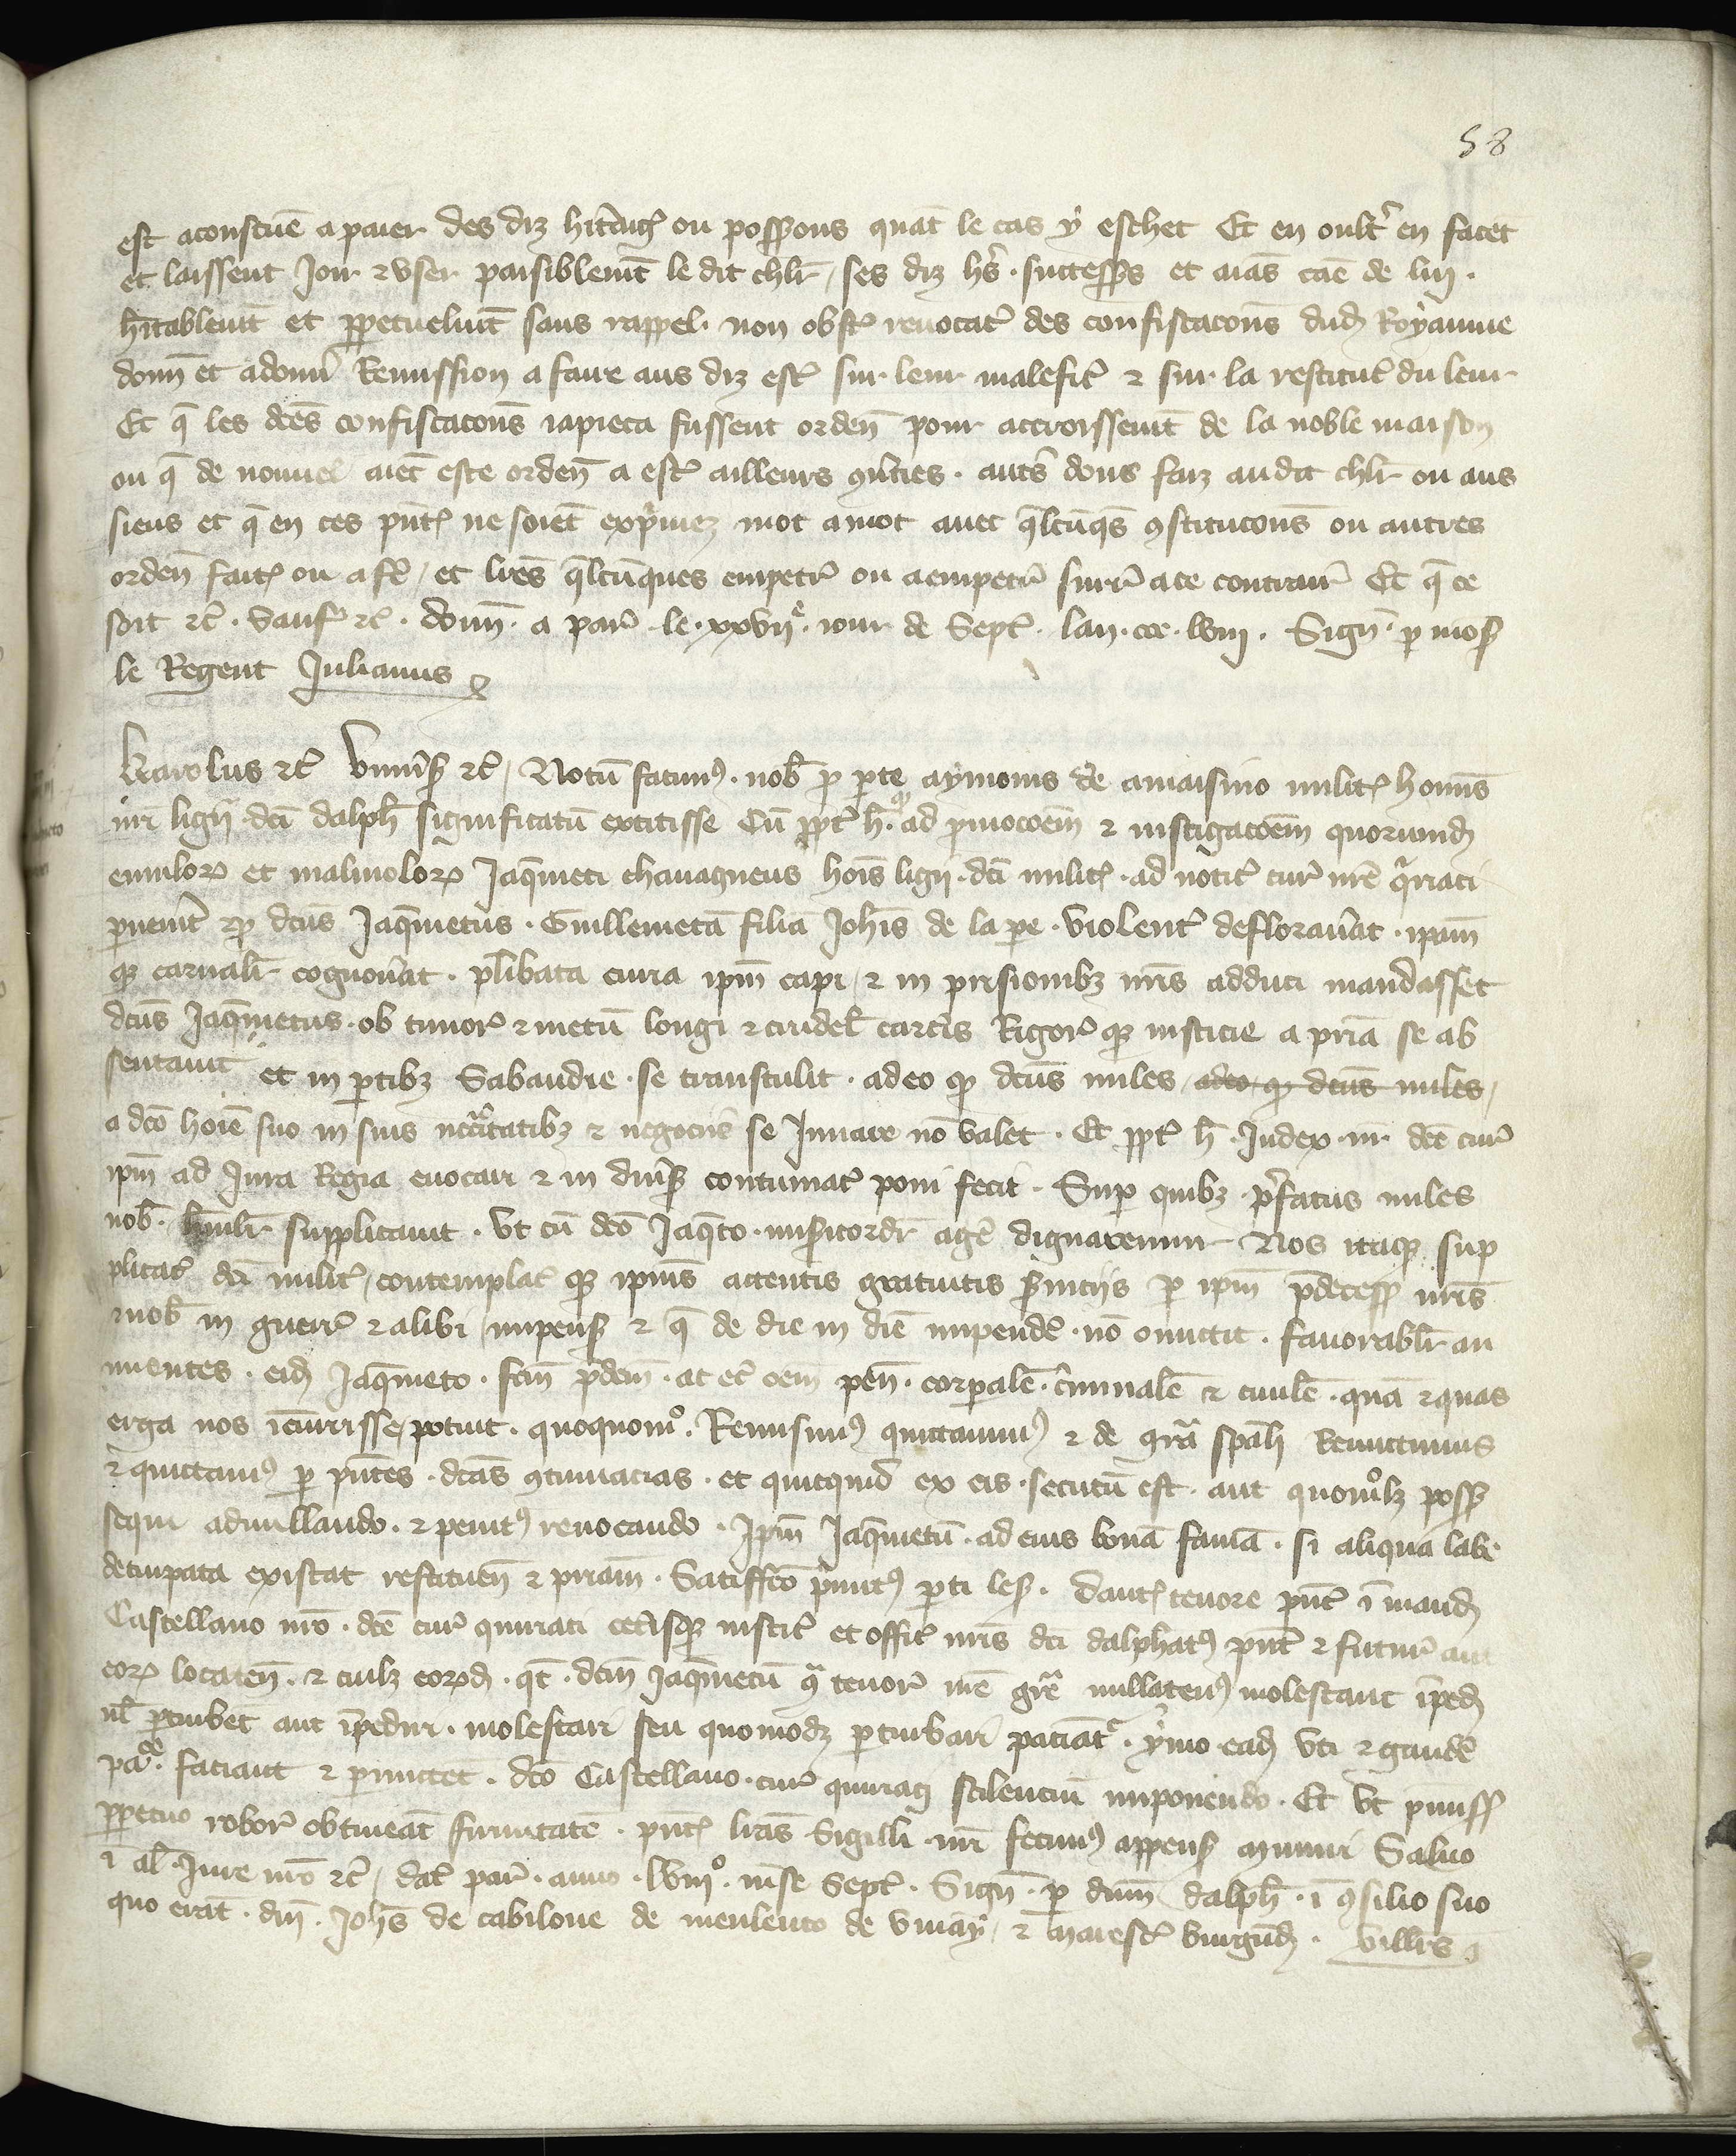 58
est aconstūē a paier des diz hit̄aig̃ ou possṡons quāt le cas y eschet Et en oult̃ en facēt
et laissent Joir ⁊ user paisiblem̄t le dit chl̃r / ses diz hr̃s · successrs̃ et aiās cāe de lui ·
h̃itablem̄t et ꝑpetuelm̄t sans rappel · non obst̃ reuocat̃ des confiscacōns dud̃ Royaume
donn̄ et a donn̄ Remission a faire aus diz est̃ sur leur malefic̃ ⁊ sur la restitut̃ du leur
Et q̄ les dc̄es confiscacōns iapieca fussent orden̄ pour accroissem̄t de la noble maison
ou q̄ de nouuel aiēt este orden̄ a est̃ ailleurs ꝯũties · aut̃s dons faiz au dit chl̃r ou aus
siens et q̄ en ces p̄nt̃ ne soiēt exp̃mez mot a mot auec q̄lcūqs̄ ꝯstitucōns ou autres
orden̄ fait̃ ou a fē / et lr̄es q̄lcūques empetr̃ ou a empetr̃ surr̃ a ce contrair̃ Et q̄ ce
soit ⁊c̃ · Sauf ⁊c̃ · donn̄ · a par̃ · le · xxvii͛ · iour de Sept̃ · lan · ccc · lviii · Sign̄ · ꝑ mos̃
le Regent Julianus
Karolus ⁊c̃ Vniũs̃ ⁊c̃ / Notū facim⁹ · nob̃ ꝓ ꝑte aymonis de amaisino milit̃ homīs
nr̄i ligii · dc̄i dalph̃ significatū extitisse Cū ꝓpt̃ h̄ · qd ad ꝓuocōem̄ ⁊ instigacōem̄ quorumd̃
emulorꝝ et maliuolorꝝ Jaq̄meti chauagneus hoīs ligii · dc̄i milit̃ · ad notic̃ cur̃ nr̄e q̃riaci
ꝑuenit̃ ꝙ dcūs Jaq̄metus · Guillemetā filiā Joh̄is de la pe · violent̃ deflorau̾at · ip̄am
qꝫ carnalr̃ cognou̾at · p̄libata curia ip̄m capi / ⁊ in prisionibꝫ nr̄is adduci mandasset
dcūs Jaq̄metus · ob timor̃ ⁊ metū longi ⁊ crudel̃ carc̃is Rigor̃ qꝫ iusticie a pr̄ia se ab
sentauit et in ꝑtibꝫ Sabaudie · se transtulit · adeo ꝙ dcūs miles / adeo ꝙ dcūs miles /
a dc̄o hoīe suo in suis nccītatibꝫ ⁊ negociis se Juuare nō valet · Et ꝓpt̃ h̄ · Judex · nr̄ dc̄e cur̃
ip̄m ad Jura Regia euocari ⁊ in diu̾s̃ contumac̃ poni fecit · Suꝑ quibꝫ · p̃fatus miles
nob̃ · hum̄lr̃ supplicauit · vt cū dc̄o Jaq̄to · mis̃icordr̃ agē dignaremur Nos itaqꝫ sup
plicac̃ dc̄i milit̃ / contemplac̃ qꝫ ipius̄ attentis gratuitis s̾uiciis ꝑ ip̄m p̄decess̃ nr̄is
⁊ nob̃ in guerr̃ ⁊ alibi impens̃ ⁊ q̄ de die in diē impendē · nō omittit · fauorablr̃ an
nuentes · eid̃ Jaq̄meto · fcm̄ p̄dcm̄ · ac et̃ oem̄ pen̄ · corꝑalē · c̃minalē ⁊ ciuilē · quā ⁊ quas
erga nos icūrrisse potuit · quoquomͦ · Remisim⁹ quictauim⁹ ⁊ de grā spāli Remictimus
⁊ quictam⁹ ꝑ p̄ntes · dcās ꝯtumacias · et quicquid ex eis · secutū est · aut quomͦlꝫ poss̃
sequi adnullando · ⁊ penit⁹ reuocando · Ip̄m Jaq̄metū · ad eius bonā famā · si aliqua labe ·
deturpata existat restituen̄ ⁊ pr̄iam̄ · Satiffc̄o p̃mit⁹ ꝑti les̃ · Dant̃ tenore p̄nt̃ ī mand̃
Castellano nr̄o · dc̄e cur̃ quiriaci cet̾isqꝫ iustic̃ et offic̃ nr̄is dc̄i dalphat⁹ p̄nt̃ ⁊ futur̃ aut
eorꝝ locaten̄ · ⁊ cuilꝫ eorꝝd̃ · qt̃ · dcm̄ Jaq̄metū ꝯ tenor̃ nr̄e gr̃e nullaten⁹ molestant īped̃
ul̃ ꝑturbet aut īpediri · molestari seu quomodꝫ ꝑturbari paciāt̃ · ymo · ead̃ vti ⁊ gaudē
pac̾ce · faciant ⁊ ꝑmictet · dc̄o Castellano · cur̃ quiriaci scilenciū imponendo · Et vt p̄miss̃
ꝑpetuo robor̃ obtineāt firmitatē · p̄nt̃ lr̄as Sigilli · nr̄i fecim⁹ appens̃ muniri Saluo
ī al̃ · Jure nr̄o ⁊c̃ / dat̃ par̃ · anno · lviiiͦ · m̄se Sept̃ · Sign̄ · ꝑ dnm̄ dalph̃ · ī ꝯsilio suo
quo erāt · dn̄i · Joh̄es de cabilone de meulento de vinay / ⁊ marest̃ burgund̃ · Villr̄s